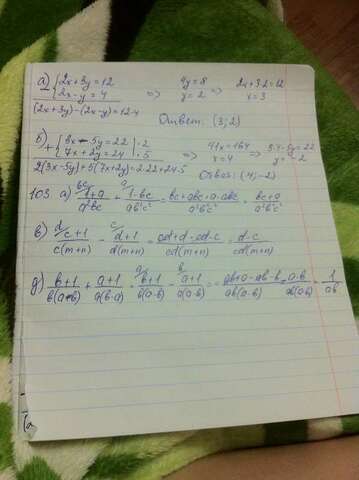 а) {2x+3y=12 4y=8 2x+3·2=12
– {2x-y=4 => y=2 => x=3
(2x+3y)-(2x-y)=12-4
Ответ: (3;2)
б) {3x-5y=22 |·2 41x=164 3·4-5y=22
+ {7x+2y=24 |·5 => x=4 => y=-2
2(3x-5y)+5(7x+2y)=2·22+24·5
Ответ: (4;-2)
103 а) (1+a)/(a²bc) + (1-bc)/(ab²c²) = (bc+abc+a-abc)/(a²b²c²) = (bc+a)/(a²b²c²)
в) (c+1)/(c(m+n)) - (d+1)/(d(m+n)) = (cd+d-cd-c)/(cd(m+n)) = (d-c)/(cd(m+n))
д) (b+1)/(b(a-b)) + (a+1)/(a(b-a)) = (b+1)/(b(a-b)) - (a+1)/(a(a-b)) = (ab+a-ab-b)/(ab(a-b)) = (a-b)/(ab(a-b)) = 1/(ab)